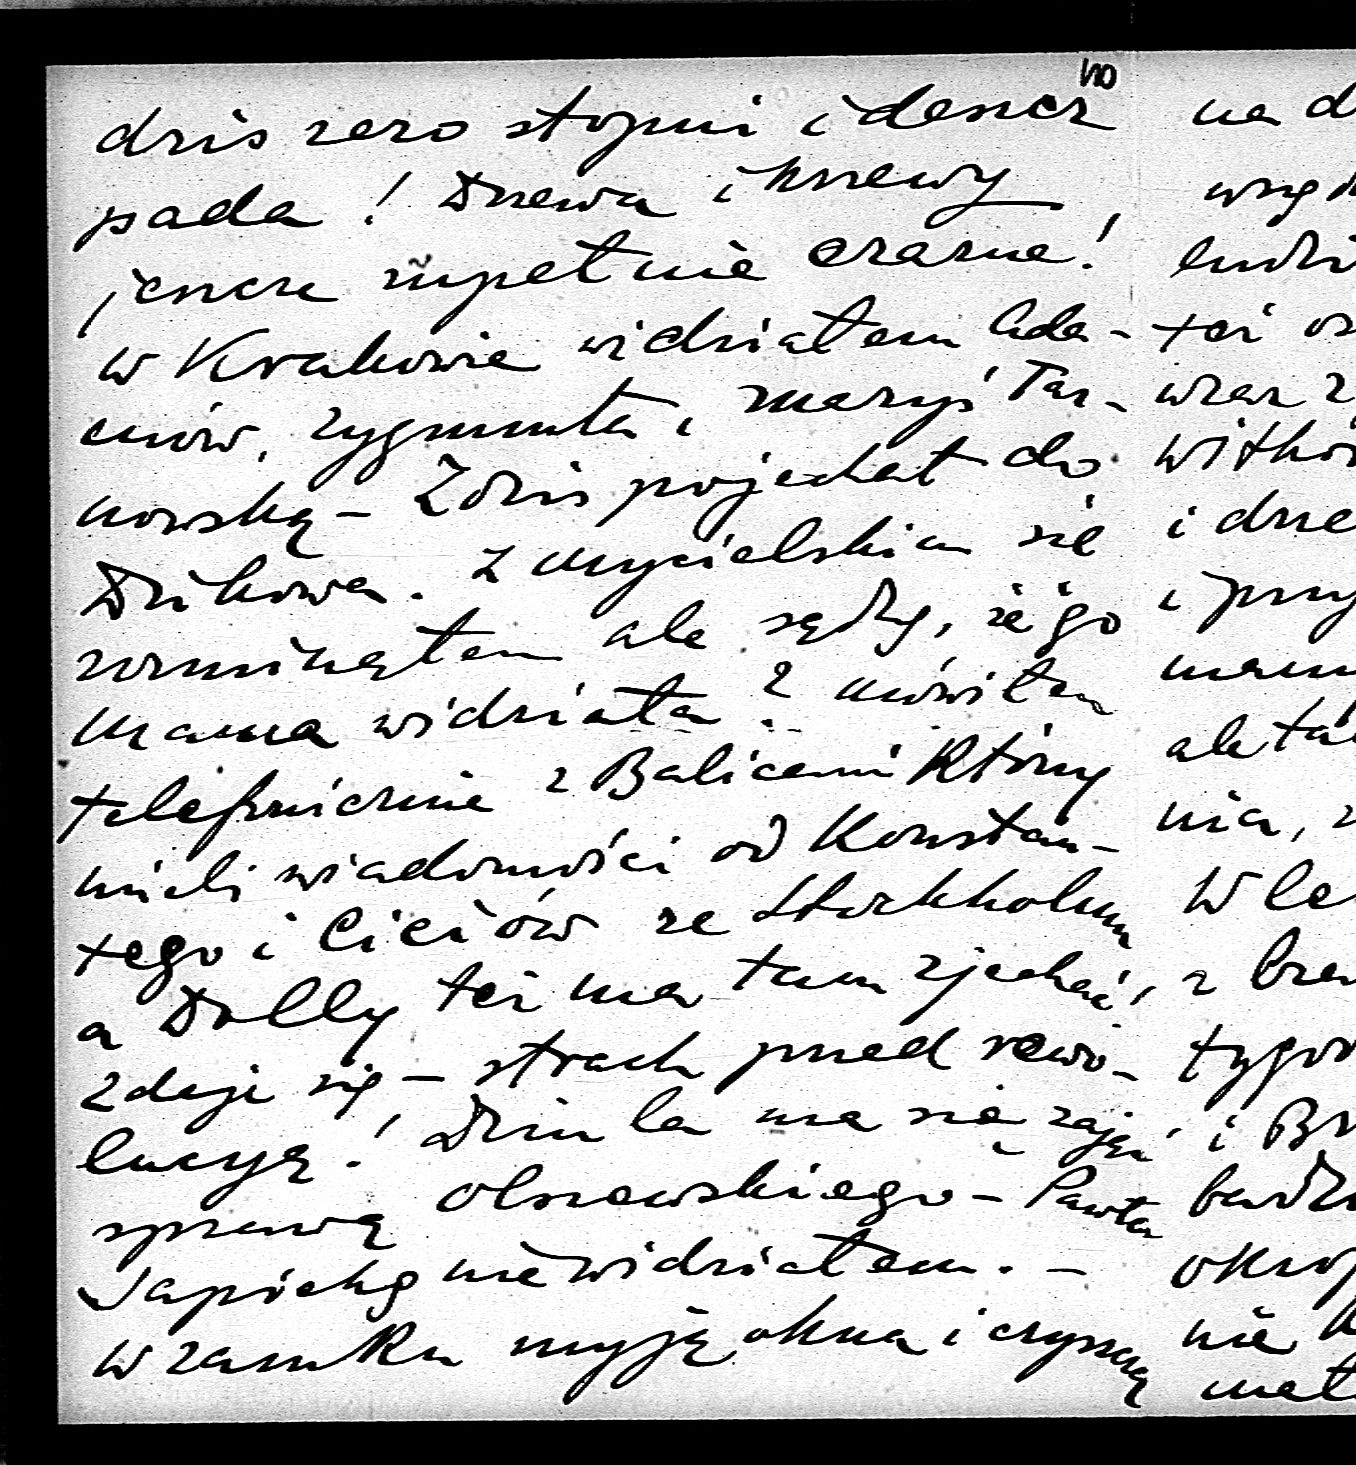 110
dziś zero stopni i deszcz
pada! Drzewa i krzewy
jeszcze zupełnie czarne!
w Krakowie widziałem Ada-
mów, Zygmunta i Maryś Tar-
nowską – Zdziś pojechał do
Dzikowa. Z Mycielskim się
rozminąłem ale sądzę, że go
Mama widziała? Mówiłem
telefonicznie z Balicami którzy
mieli wiadomości od Konstan-
tego i Ciciów ze Stockholmu
a Dolly też ma tam zjechać,
zdaje się – strach przed rewo-
lucyą! Dziula ma się zająć
sprawą Olszewskiego – Pawła
Sapiehę nie widziałem. –
w zamku myją okna i czyszczą
na d
i drze
i przy
nia, z
W le
i Br
nie